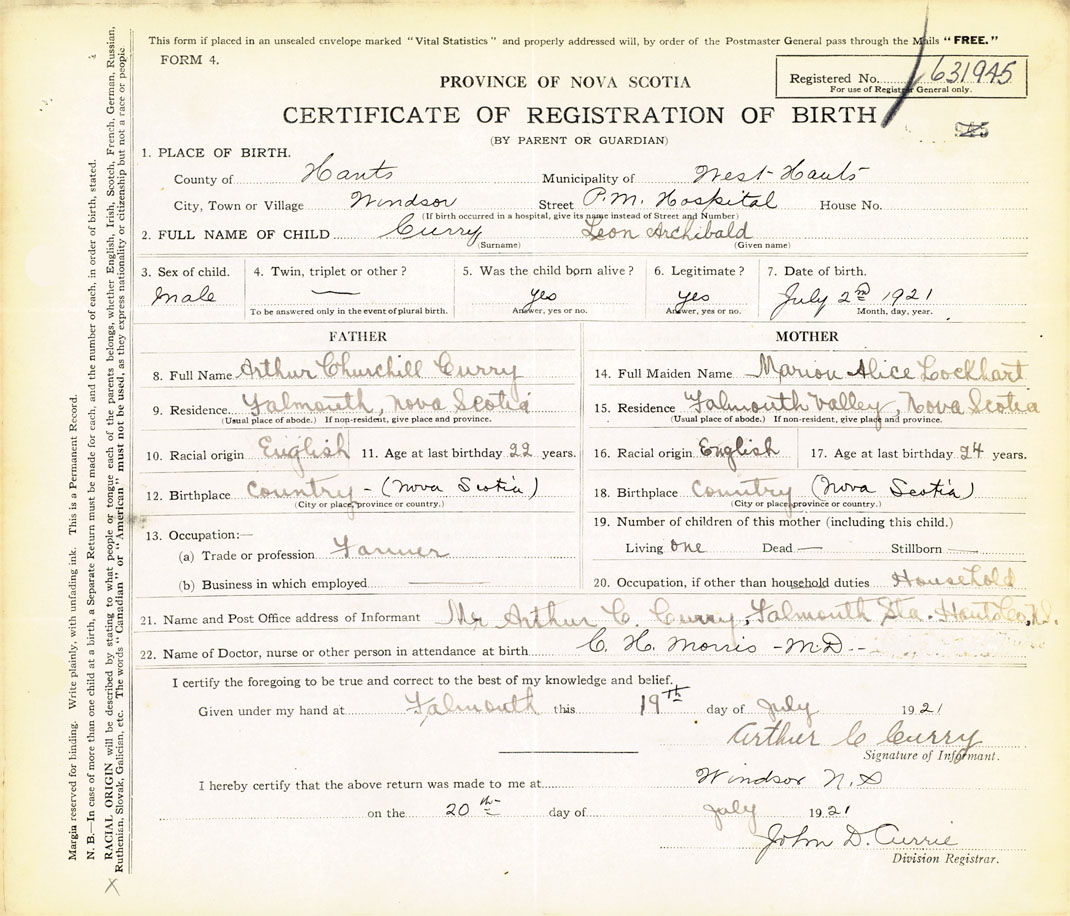 This form if placed in an unsealed envelope marked "Vital Statistics" and properly addressed will, by order of the Postmaster General pass through the Mails "FREE."
FORM 4.
Registered No. 631945
For use of Registrar General only.
PROVINCE OF NOVA SCOTIA
CERTIFICATE OF REGISTRATION OF BIRTH
(BY PARENT OR GUARDIAN)
945
1. PLACE OF BIRTH.
County of Hants Municipality of West Hants
City, Town or Village Windsor Street P.M. Hospital House No.
(If birth occurred in a hospital, give its name instead of Street and Number)
2. FULL NAME OF CHILD Curry Leon Archibald
(Surname) (Given name)
3. Sex of child. 4. Twin, triplet or other? 5. Was the child born alive? 6. Legitimate? 7. Date of birth.
Male — yes yes July 2nd 1921
To be answered only in the event of plural birth. Answer, yes or no. Answer, yes or no. Month, day, year.
FATHER
8. Full Name Arthur Churchill Curry
9. Residence Falmouth, Nova Scotia
(Usual place of abode.) If non-resident, give place and province.
10. Racial origin English 11. Age at last birthday 22 years.
12. Birthplace Country - (Nova Scotia)
(City or place, province or country.)
13. Occupation:—
(a) Trade or profession Farmer
(b) Business in which employed
MOTHER
14. Full Maiden Name Marion Alice Lockhart
15. Residence Falmouth Valley, Nova Scotia
(Usual place of abode.) If non-resident, give place and province.
16. Racial origin English 17. Age at last birthday 24 years.
18. Birthplace Country (Nova Scotia)
(City or place, province or country.)
19. Number of children of this mother (including this child.)
Living one Dead — Stillborn —
20. Occupation, if other than household duties Household
21. Name and Post Office address of Informant Mr Arthur C. Curry, Falmouth Sta. Hants Co, N.S.
22. Name of Doctor, nurse or other person in attendance at birth C. H. Morris - M.D. -
I certify the foregoing to be true and correct to the best of my knowledge and belief.
Given under my hand at Falmouth this 19th day of July 1921
Arthur C Curry
Signature of Informant.
I hereby certify that the above return was made to me at Windsor N.S
on the 20th day of July 1921
John D. Currie
Division Registrar.
Margin reserved for binding. Write plainly, with unfading ink. This is a Permanent Record.
N. B.—In case of more than one child at a birth, a Separate Return must be made for each, and the number of each, in order of birth, stated.
RACIAL ORIGIN will be described by stating to what people or tongue each of the parents belongs, whether English, Irish, Scotch, French, German, Russian,
Ruthenian, Slovak, Galician, etc. The words "Canadian" or "American" must not be used, as they express nationality or citizenship but not a race or people.
X